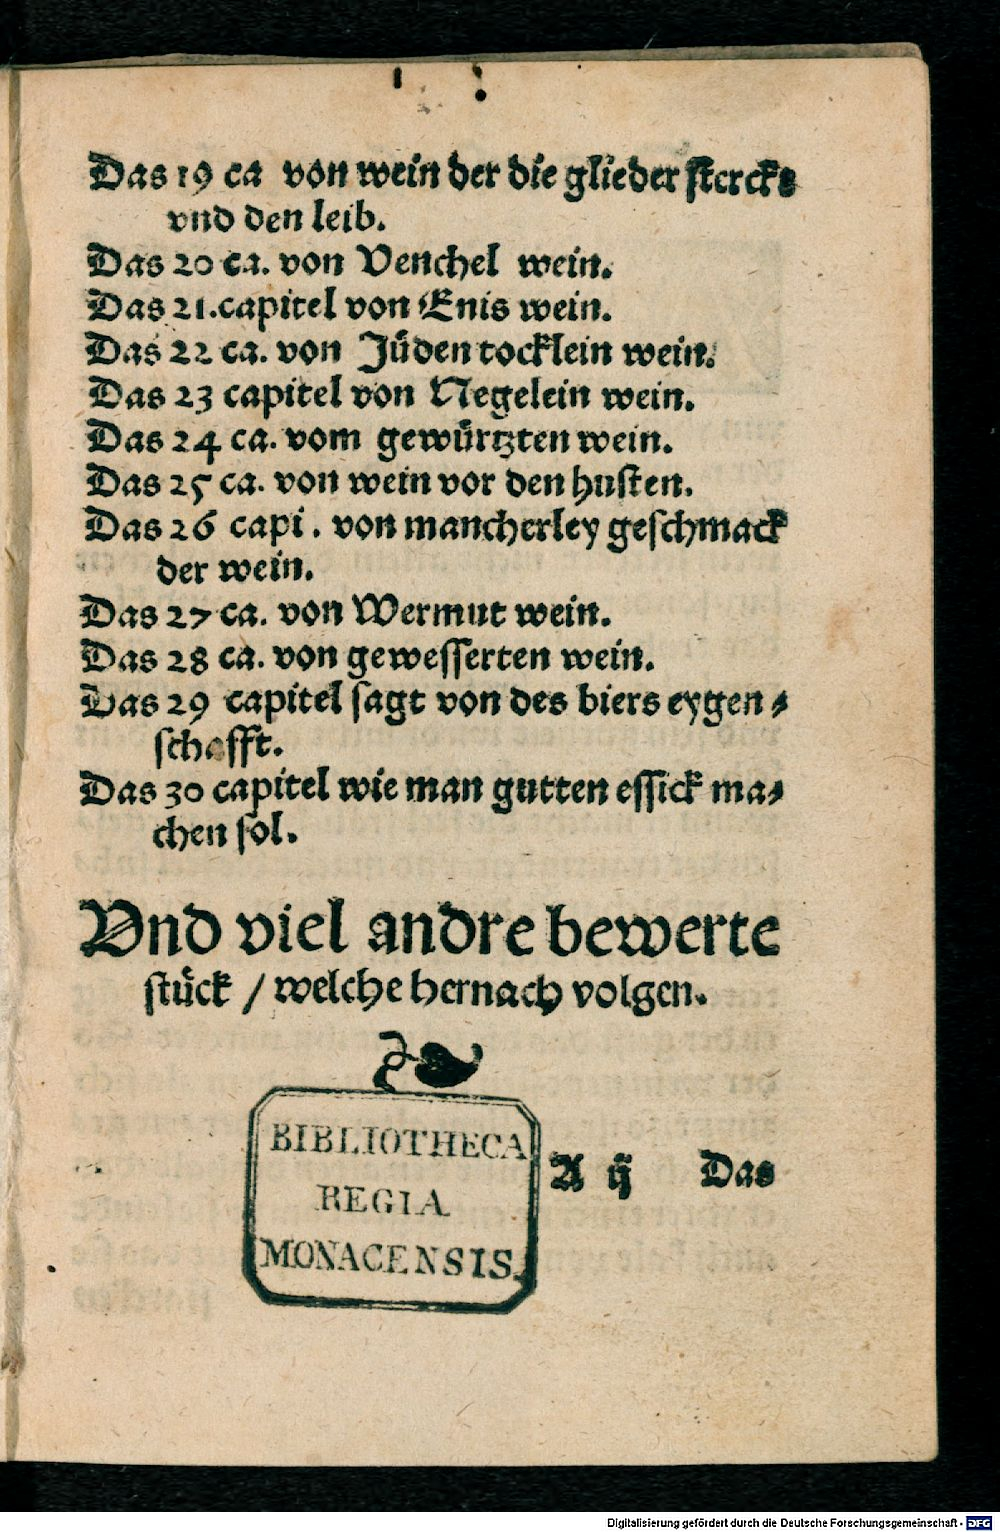 Das 19 ca von wein der die glieder sterckt
vnd den leib.
Das 20 ca. von Venchel wein.
Das 21. capitel von Enis wein.
Das 22 ca. von Jüden tocklein wein.
Das 23 capitel von Negelein wein.
Das 24 ca. vom gewürtzten wein.
Das 25 ca. von wein vor den husten.
Das 26 capi. von mancherley geschmack
der wein.
Das 27 ca. von Wermut wein.
Das 28 ca. von gewesserten wein.
Das 29 capitel sagt von des biers eygen⸗
schafft.
Das 30 capitel wie man gutten essick ma⸗
chen sol.
Vnd viel andre bewerte
stück / welche hernach volgen.
BIBLIOTHECA
REGIA
MONACENSIS.
A ij Das
Digitalisierung gefördert durch die Deutsche Forschungsgemeinschaft - DFG